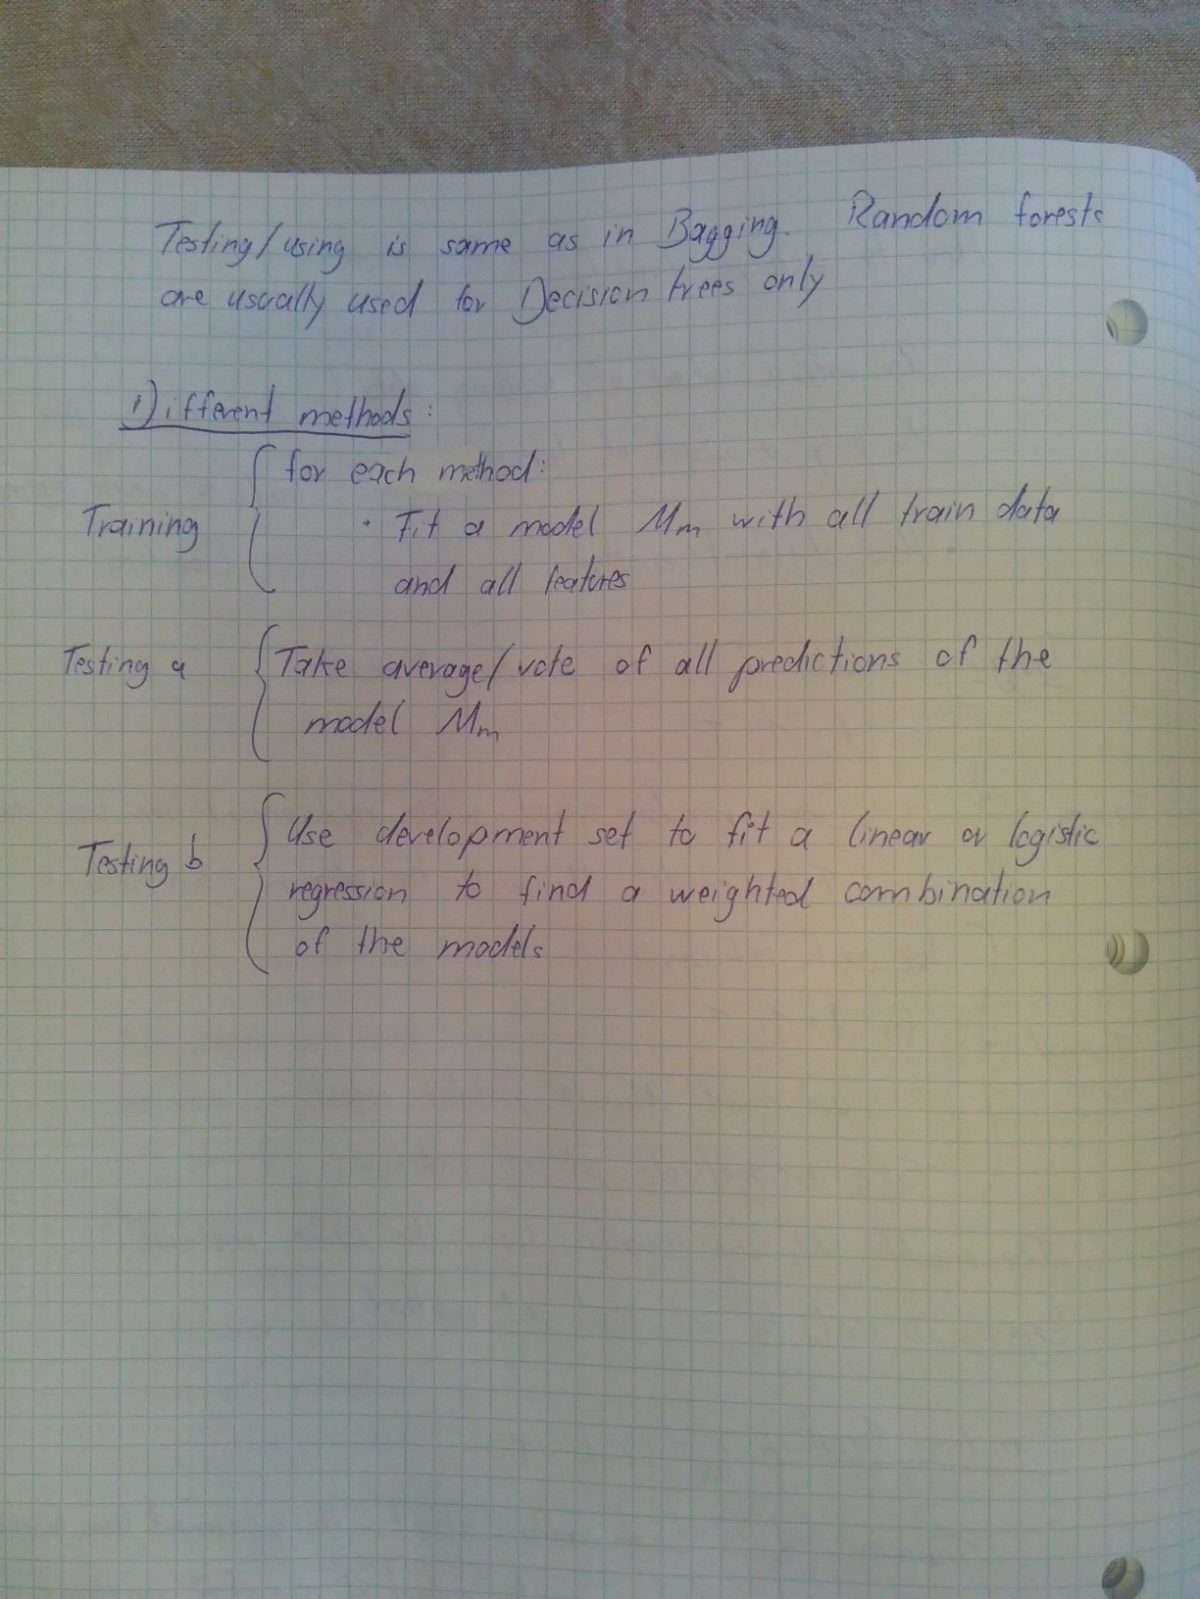 Testing/using is same as in Bagging. Random forests
are usually used for Decision trees only
Different methods:
for each method:
Training
• Fit a model Mm with all train data
and all features
Testing a
Take average/vote of all predictions of the
model Mm
Testing b
Use development set to fit a linear or logistic
regression to find a weighted combination
of the models